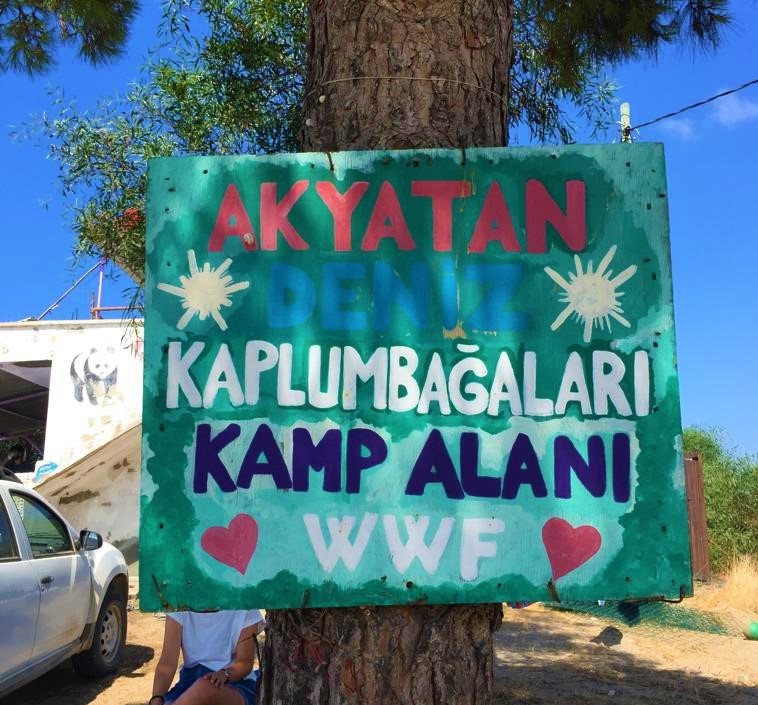 AKYATAN
DENİZ
KAPLUMBAĞALARI
KAMP ALANI
WWF